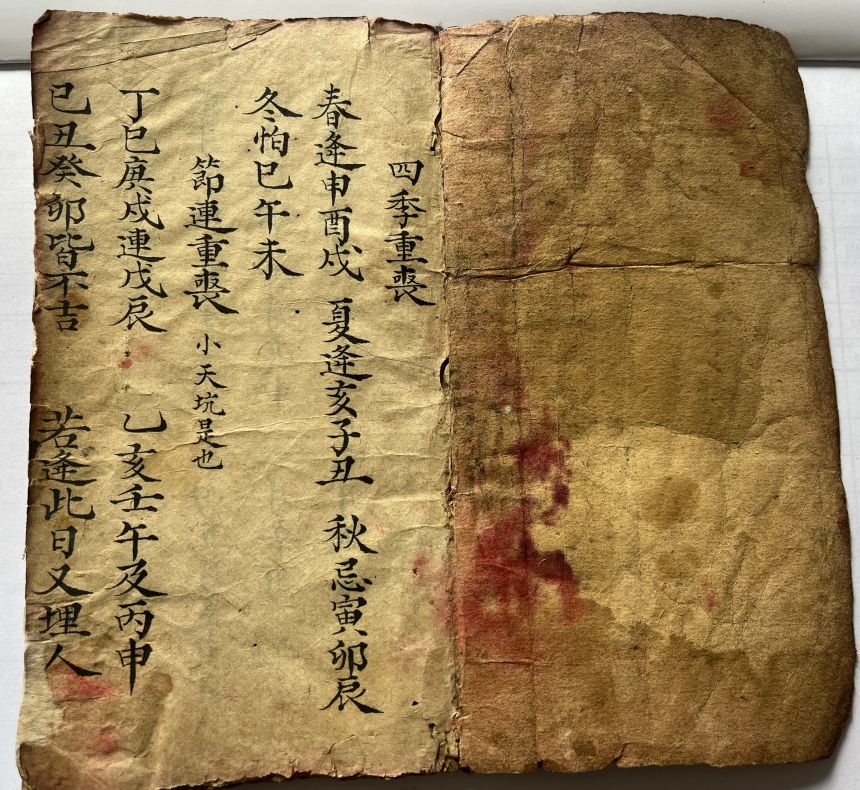 四季重喪
春逢申酉戍 夏逢亥子丑 秋忌寅卯辰
冬怕巳午未
節連重喪 小天坑是也
丁巳庚戍連戊辰 乙亥壬午及丙申
巳丑癸卯皆不吉 若逢此日又埋人